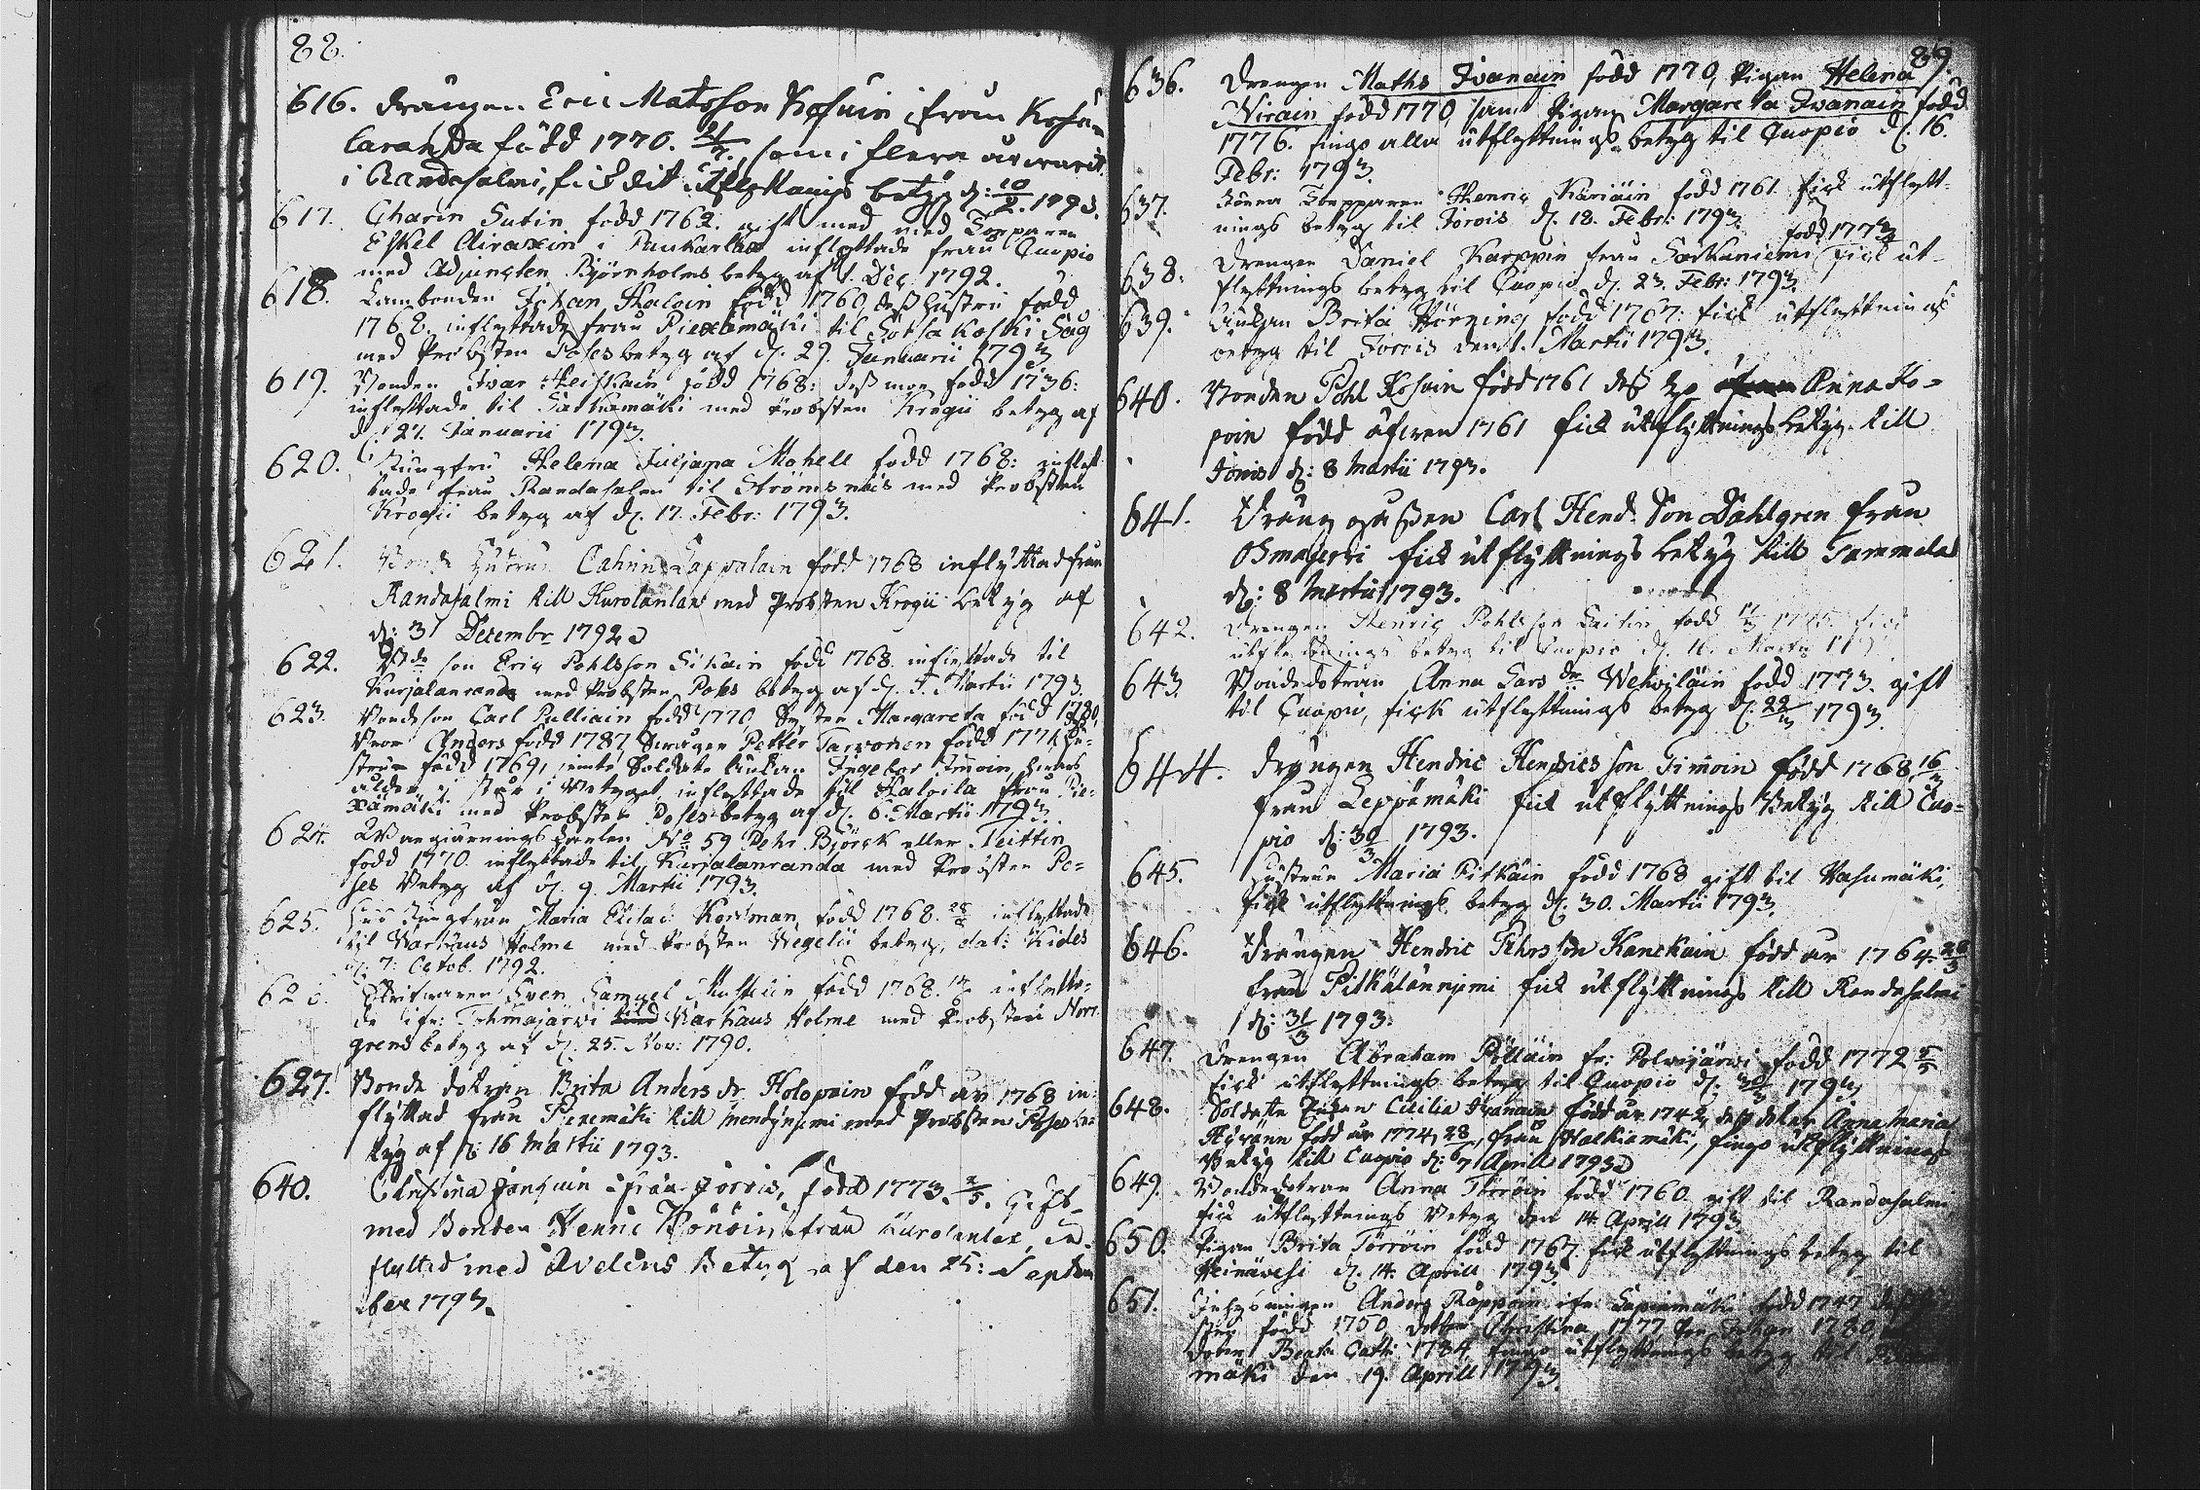 88.
616. Drängen Eric Matsson Kosuin ifrån Kosu=
lanranda född 1770. 21/7. som i flera år warit
i Randasalmi, fick dit utflyttnings betyg d: 10/2. 1793.
617. Charin Sutin född 1762. gift med Torparen
Eskel Airaxin i Puukarlax inflyttade från Cuopio
med Adjuncten Björnholms betyg af 1. Dec. 1792.
618. Landbonden Johan Haloin född 1760, dess hustru född
1768. inflyttade från Piexämäki til Sorsakoski Såg
med Probsten Poses betyg af d. 29. Januarii 1793
619. Bonden Ivar Heiskain född 1768: dess mor född 1736:
inflyttade til Sarkamäki med Probsten Krogii betyg af
d. 27. Januarii 1793.
620. Jungfru Helena Juliana Mohell född 1768: inflyt
tade från Randasalmi til Strömsnäs med Probsten
Krogii betyg af d. 17. Febr: 1793.
621. Bonde hustrun Cahrin Lappalain född 1768 inflyttad från
Randasalmi till Kurolanlax med Probsten Krogii betyg af
d: 31 Decembr 1792
622. Bde son Eric Pohlsson Sikain född 1768 inflyttade til
Kurjalanranda med Probsten Poses betyg af d. 7. Martii 1793.
623. Bondeson Carl Pulliain född 1770, Syster Margareta född 1780,
Bror Anders född 1787, Swåger Petter Tarvonen född 1771, hu=
strun född 1769, samt Soldate änkan Ingebor Immoin, hwars
ålder ej står i betyget, inflyttade til Haloila från Pie=
xämäki med Probsten Poses betyg af d. 6. Martii 1793.
624. Wargiärnings Karlen No 59 Pehr Björck eller Teittin
född 1770. inflyttade til Kurjalanranda med Probsten Po=
ses Betyg af d. 9. Martii 1793.
625. Jungfrun Maria Elisab: Korsman född 1768. inflyttade
til Warkaus Holme med Probsten Wegelii betyg, dat: Kides
d. 7: Octob. 1792.
626. Skrifwaren Sven Samuel född 1768. inflytta=
de ifr: Tohmajärwi Warkaus Holme med Probsten Norr
grens betyg af d. 25. Nov: 1790.
627. Bonde dotran Brita Anders dr Holopain född år 1768 in
flyttad från Piexemäki till Mendyniemi med Probsten Poses be
tyg af d: 16 Martii 1793.
640. Christina ifrån Jorois, född 1773. 2/5. Gift
med Bonden Henric Hänöin från Kurolanlax, in
flyttad med Avelins Betyg af den 25: Septem
ber 1793.
89.
636. Drengen Maths Ivanain född 1770, Pigan Helena
Nirain född 1770, samt Pigan Margareta Ivanain född
1776. fingo alla utflyttnings betyg til Cuopio d. 16.
Febr: 1793.
637. Torpparen Henric född 1761. fick utflytt=
nings betyg til Jorois d. 18. Febr: 1793.
638. Drengen Daniel Karppin från Sarkaniemi född 1773 fick ut=
flyttnings betyg til Cuopio d. 23. Febr: 1793.
639. Änkan Brita Hörning född 1767: fick utflyttnings
betyg til Jorois den 1. Martii 1793.
640. Bonden Pohl Kosoin född 1761 dess Anna Ko=
soin född äfwen 1761 fick utflyttnings betyg till
Jorois d: 8 Martii 1793.
641. Dräng gossen Carl Hend: Son Dahlgren från
Osmajerwi fick utflyttnings betyg till Tammela
d: 8 Martii 1793.
642. Drengen Henric Pohlsson Laitin född fick
utflyttnings betyg til Cuopio d. 16. Martii
643. Bondedotran Anna Lars dr Wehviläin född 1773. gift
til Cuopio, fick utflyttnings betyg d. 22/3 1793
644. Drängen Hendric Hendricsson Timoin född 1768
från Leppämäki fick utflyttnings Betyg till Cuo=
pio d: 30/3 1793.
645. Hustrun Maria Pitkäin född 1768 gift til Vasumäki,
fick utflyttnings betyg d. 30. Martii 1793.
646. Drängen Hendric Pehrsson Kanckain född år 1764
från Pitkälänniemi fick utflyttnings till Randasalmi
d: 31/3 1793.
647. Drengen Abraham Pölläin fr: Polvijärvi född 1772
fick utflyttnings betyg til Cuopio d. 30/3 1793
648. Soldate Enkan Cicilia Ivanain född år 1742, dess doter Anna Maria
Hyränn född år 1774, från Halkiamäki, fingo utflyttnings
Betyg till Cuopio d: 7 Aprill 1793
649. Bondedotran Anna Törröin född 1760 gift til Randasalmi
fick utflyttnings betyg den 14. Aprill 1793
650. Pigan Brita Törröin född 1767. fick utflyttnings betyg til
Heinävesi d. 14. Aprill 1793
651. Inhysningen Anders Räppäin ifr: Lapinmäki född 1747
född 1750 Christina 1777 Johan 1780,
Beata Catri 1784 fingo utflyttnings betyg til
mäki den 19. Aprill 1793.